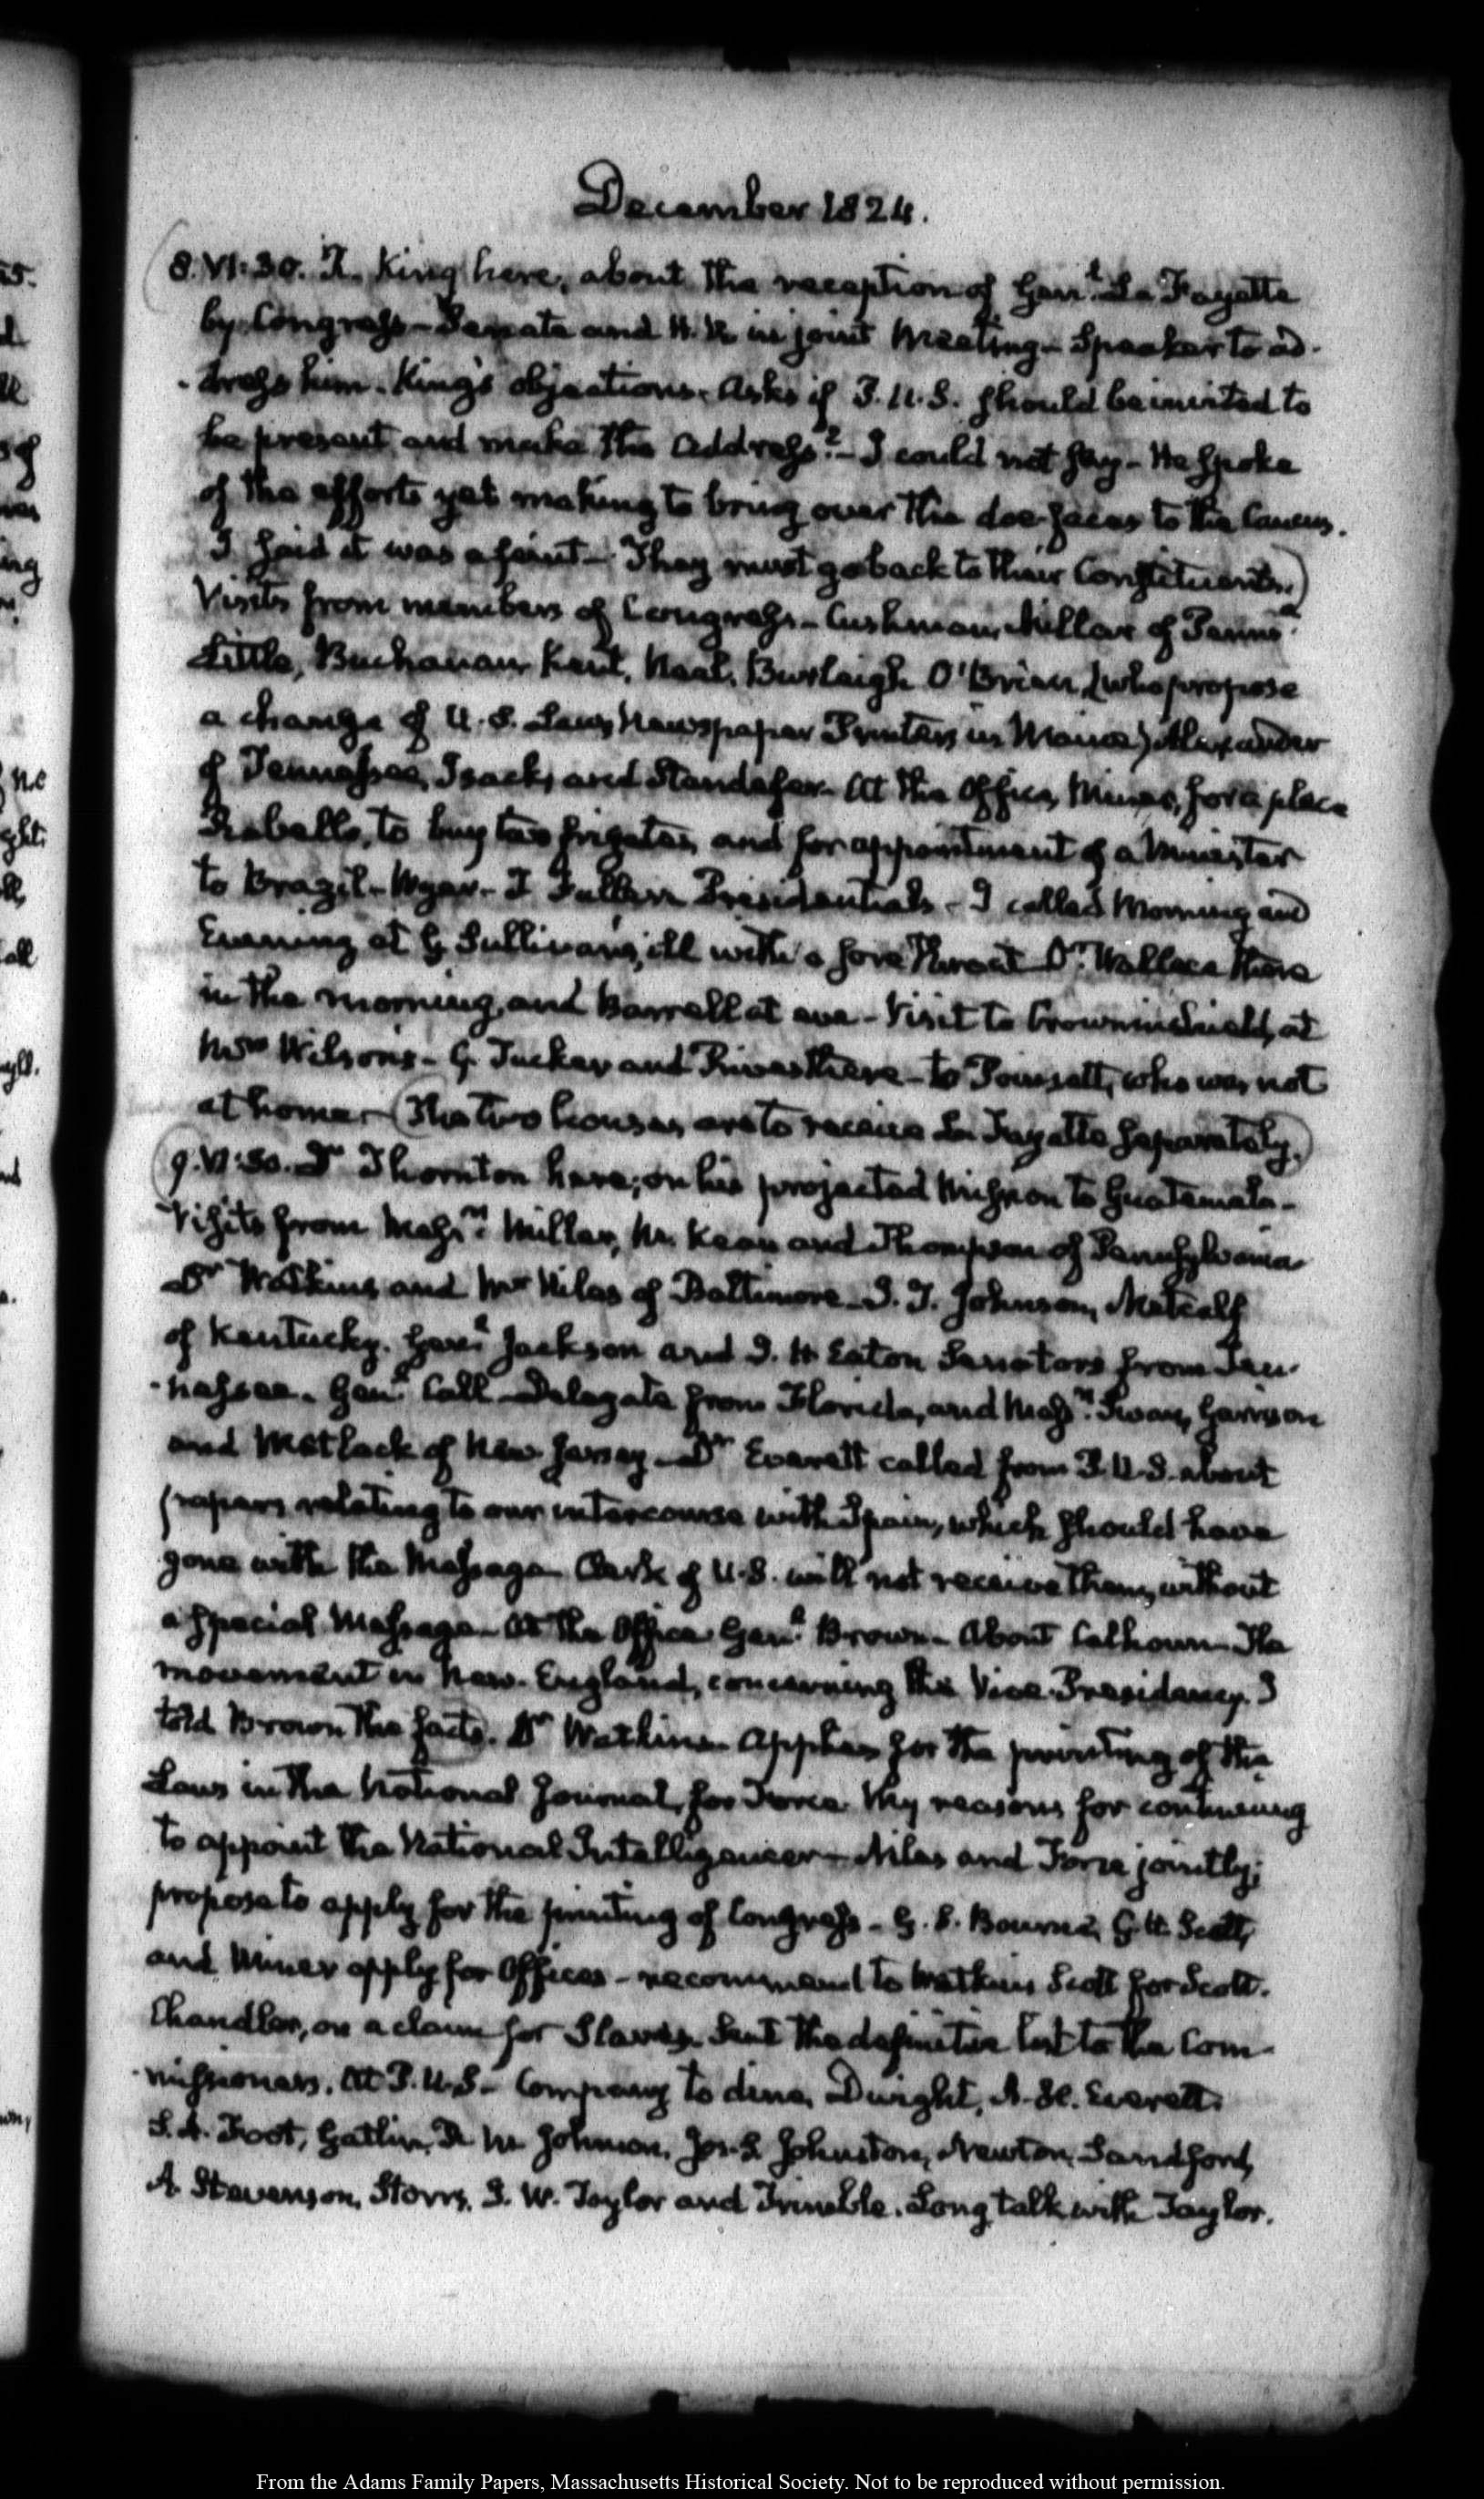 December 1824.
8. VI:30. R. King here, about the reception of Genl. La Fayette
by Congress — Senate and H. R in joint Meeting — Speaker to ad-
-dress him. King's objections. Asks if P.U.S. should be invited to
be present and make the Address? — I could not say — He spoke
of the efforts yet making to bring over the doe-faces to the Caucus.
I said it was a feint — They must go back to their Constituents.)
Visits from members of Congress — Cushman, Miller of Penna.
Little, Buchanan, Kent, Neal, Burleigh O'Brien, (who propose
a change of U.S. Laws, Newspaper Printers in Maine) Alexander
of Tennessee, Isacks and Standefer — At the Office, Miner, for a place
Rebello, to buy two frigates, and for appointment of a Minister
to Brazil — Wyer — T Fuller Presidentials — I called Morning and
Evening at G. Sullivan's, ill with a sore throat Dr. Wallace there
in the morning, and Barrell at eve — Visit to Crowninshield, at
Mrs Wilson's — G. Tucker and Rives there — to Poinsett, who was not
at home — (The two houses are to receive La Fayette separately.)
9. VI:30. Dr Thornton here; on his projected Mission to Guatemala —
Visits from Messrs. Miller, Mc. Kean and Thompson of Pennsylvania
Dr Watkins and Mr Niles of Baltimore — J. T. Johnson, Metcalf
of Kentucky. Genl. Jackson and J. H Eaton Senators from Ten-
-nessee. Genl. Call — Delegate from Florida, and Messrs. Swan, Garrison
and Matlack of New Jersey — Dr Everett called from P.U.S. about
papers relating to our intercourse with Spain, which should have
gone with the Message Clerk of U.S. will not receive them, without
a special Message — At the Office Genl. Brown — About Calhoun — The
movement in New-England, concerning the Vice-Presidency. I
told Brown the facts. Dr Watkins — Applies for the printing of the
Laws in the National Journal, for Force. My reasons for continuing
to appoint the National Intelligencer — Niles and Force jointly;
propose to apply for the printing of Congress — G. S. Bourne, G. H. Scott,
and Miner apply for Offices — recommend to Watkins Scott for Scott.
Chandler, on a claim for Slaves. Sent the definitive list to the Com-
-missioners. At P.U.S. — Company to dine, Dwight, A. H. Everett.
S. A. Foot, Gatlin, R M Johnson, Jos. S. Johnston, Newton, Sandford,
A. Stevenson, Storrs, J. W. Taylor and Trimble. Long talk with Taylor.
From the Adams Family Papers, Massachusetts Historical Society. Not to be reproduced without permission.